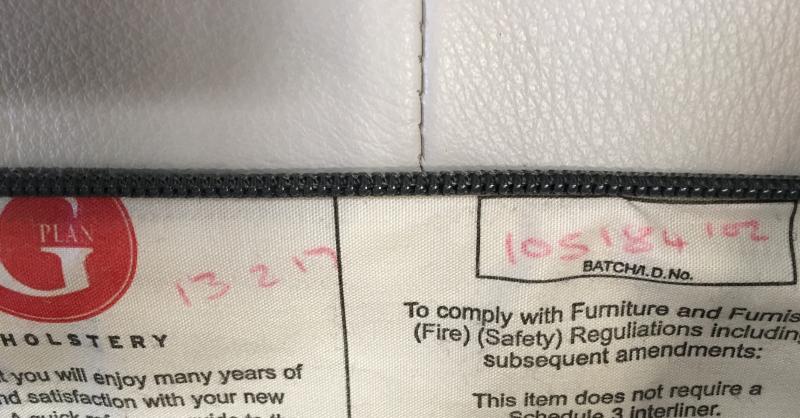 G PLAN
HOLSTERY
13 2 17
t you will enjoy many years of
nd satisfaction with your new
105184 102
BATCH/I.D.No.
To comply with Furniture and Furnis
(Fire) (Safety) Reguliations includin
subsequent amendments:
This item does not require a
Schedule 3 interliner.